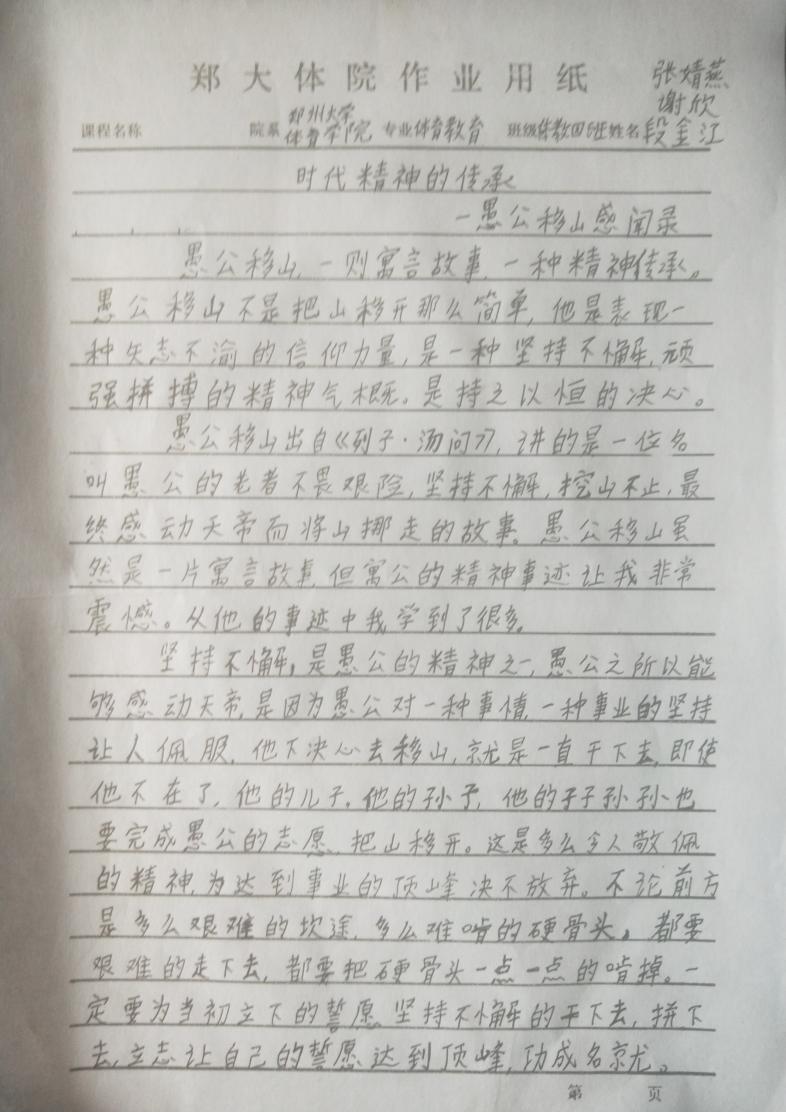 郑大体院作业用纸
张婧燕
谢欣
课程名称 院系 郑州大学体育学院 专业 体育教育 班级 体教四6班 姓名 段金江
时代精神的传承
—愚公移山感闻录
愚公移山,一则寓言故事,一种精神传承。
愚公移山不是把山移开那么简单,他是表现一
种矢志不渝的信仰力量,是一种坚持不懈,顽
强拼搏的精神气概。是持之以恒的决心。
愚公移山出自《列子·汤问》,讲的是一位名
叫愚公的老者不畏艰险,坚持不懈,挖山不止,最
终感动天帝而将山挪走的故事。愚公移山虽
然是一片寓言故事,但寓公的精神事迹让我非常
震憾。从他的事迹中我学到了很多。
坚持不懈,是愚公的精神之一,愚公之所以能
够感动天帝,是因为愚公对一种事情,一种事业的坚持
让人佩服,他下决心去移山,就是一直干下去,即使
他不在了,他的儿子,他的孙子,他的子子孙孙也
要完成愚公的志愿,把山移开。这是多么令人敬佩
的精神,为达到事业的顶峰决不放弃。不论前方
是多么艰难的坎途,多么难啃的硬骨头,都要
艰难的走下去,都要把硬骨头一点一点的啃掉。一
定要为当初立下的誓愿坚持不懈的干下去,拼下
去,立志让自己的誓愿达到顶峰,功成名就。
第 页